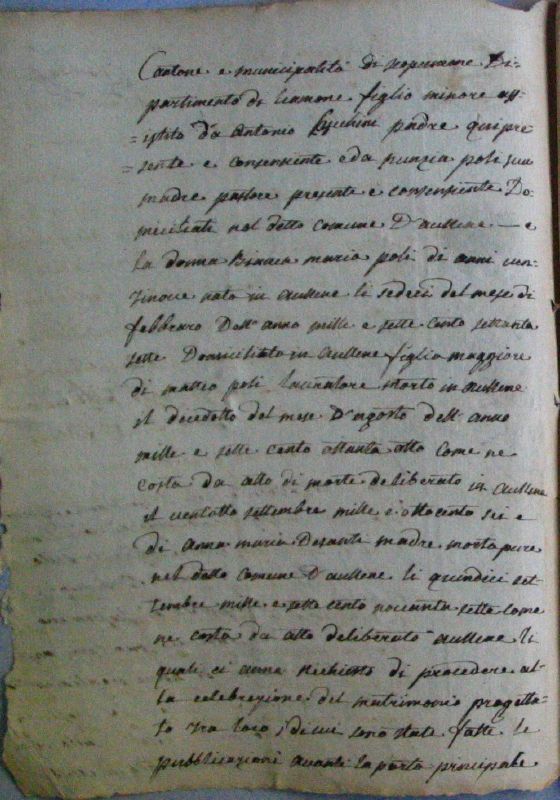 Cantone e municipalità di Di=
partimento di figlio minore as=
=sistito da Antonio Lucchini padre qui pre
=sente e consensiente e da nunzia poli sua
madre pastore presente e consensiente Do
miciliati nel detto Comune D'aullene — e
la donna Bianca maria poli di anni ven=
=tinove nata in aullene li sedeci del mese di
febbraro Dell'anno mille e sette cento settanta
sette Domiciliata in aullene figlia maggiore
di matteo poli lavoratore morto in aullene
il diecedotto del mese D'agosto dell'anno
mille e sette cento ottanta otto come ne
costa da atto di morte deliberato in aullene
il ventotto settembre mille e ottocento sei e
di anna maria Desanti madre morta pure
nel detto comune D'aullene li quindici set=
tembre mille e sette cento novanta sette come
ne costa da atto deliberato aullene li
quali ci anno richiesto di procedere al=
la celebrazione del matrimonio progetta=
to tra loro, di cui sono state fatte le
pubblicazioni avanti la porta principale